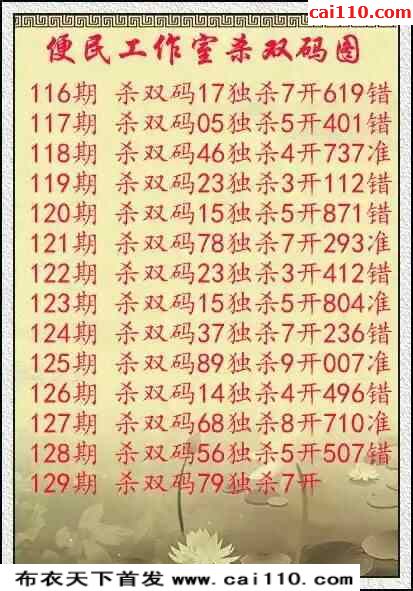 cai110.com
便民工作室杀双码图
116期 杀双码17独杀7开619错
117期 杀双码05独杀5开401错
118期 杀双码46独杀4开737准
119期 杀双码23独杀3开112错
120期 杀双码15独杀5开871错
121期 杀双码78独杀7开293准
122期 杀双码23独杀3开412错
123期 杀双码15独杀5开804准
124期 杀双码37独杀7开236错
125期 杀双码89独杀9开007准
126期 杀双码14独杀4开496错
127期 杀双码68独杀8开710准
128期 杀双码56独杀5开507错
129期 杀双码79独杀7开
布衣天下首发 www.cai110.com